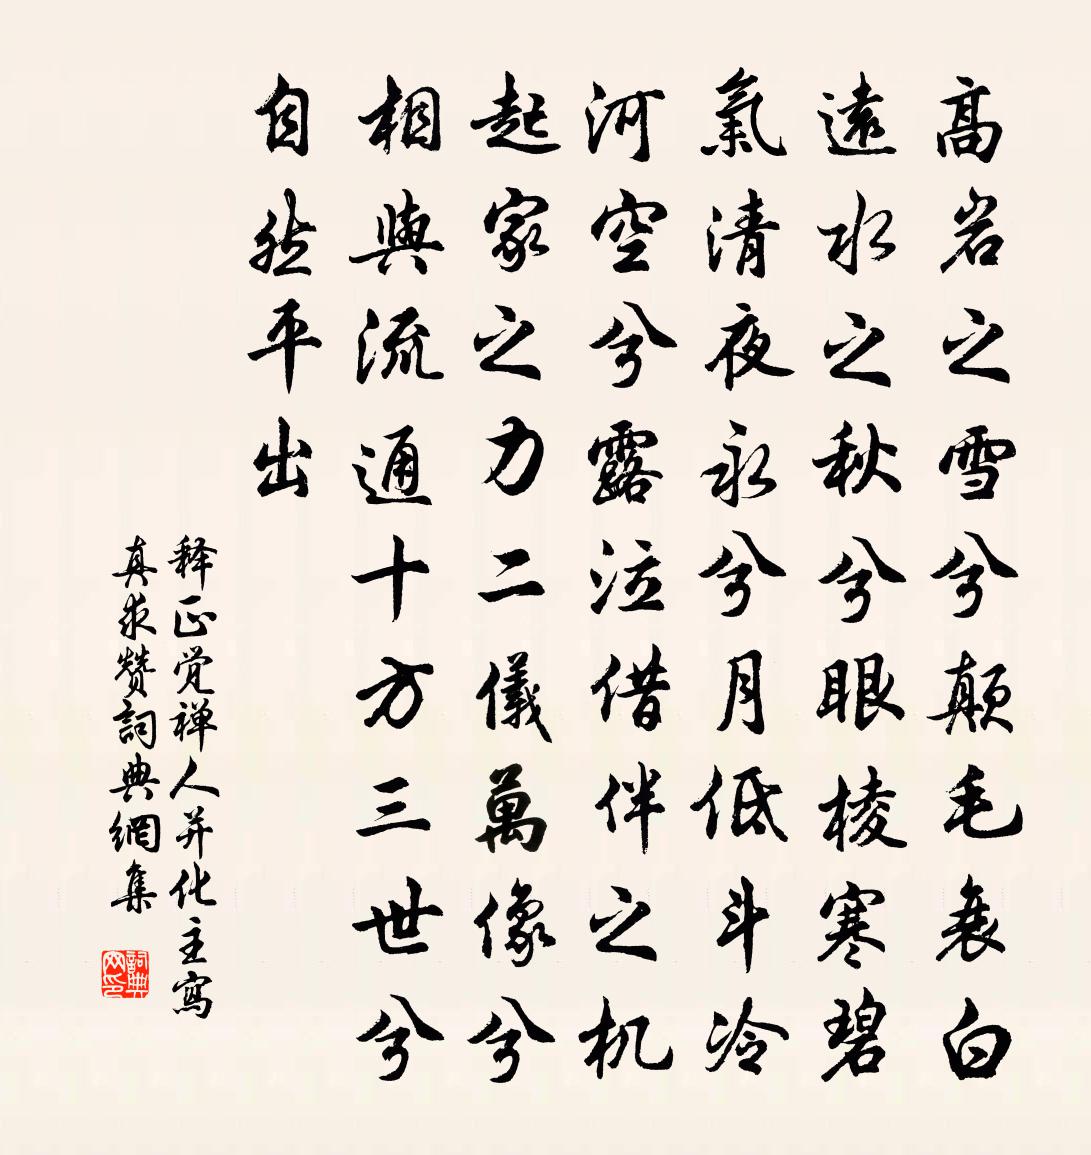 高岩之雪兮颠毛衰白
遠水之秋兮眼棱寒碧
氣清夜永兮月低斗冷
河空兮露泣借伴之机
起家之力二儀萬像兮
相與流通十方三世兮
自然平出
释正觉禅人并化主寫
真求赞詞典網集
詞典网印